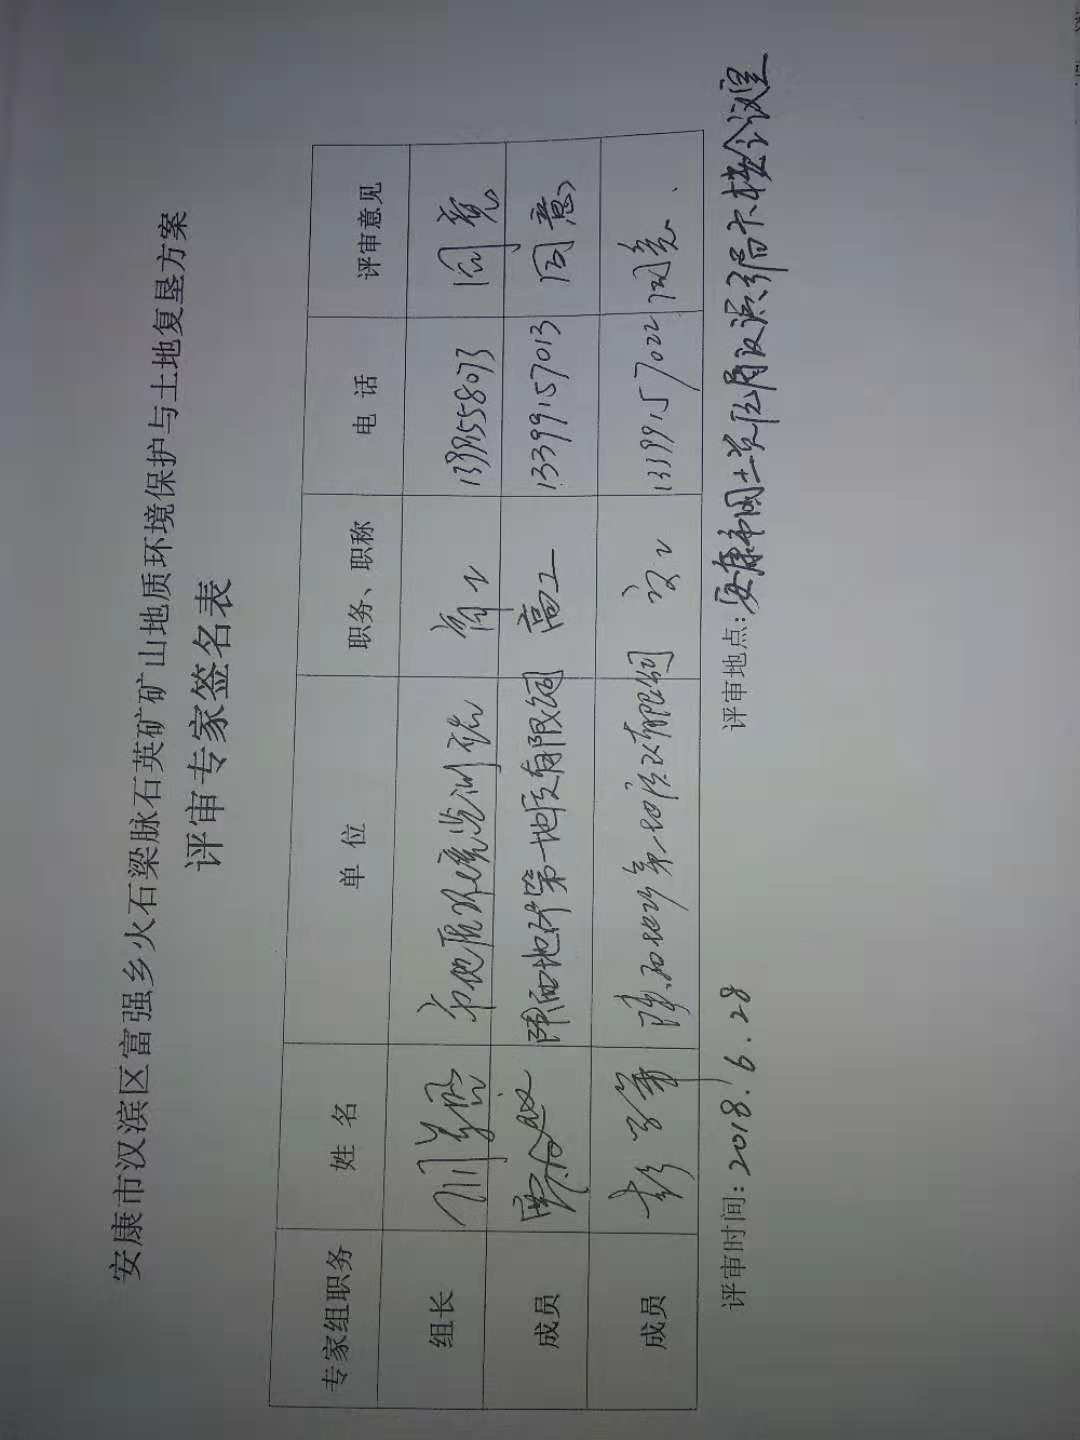 安康市汉滨区富强乡火石梁脉石英矿矿山地质环境保护与土地复垦方案
评审专家签名表
专家组职务 姓名 单位 职务、职称 电话 评审意见
组长 市地质环境监测站 高工 同意
成员 陕西地矿第一地质有限公司 高工 13399157013 同意
成员 高工 13399157022 同意.
评审时间: 2018.6.28 评审地点: 安康市国土资源局汉滨分局六楼会议室